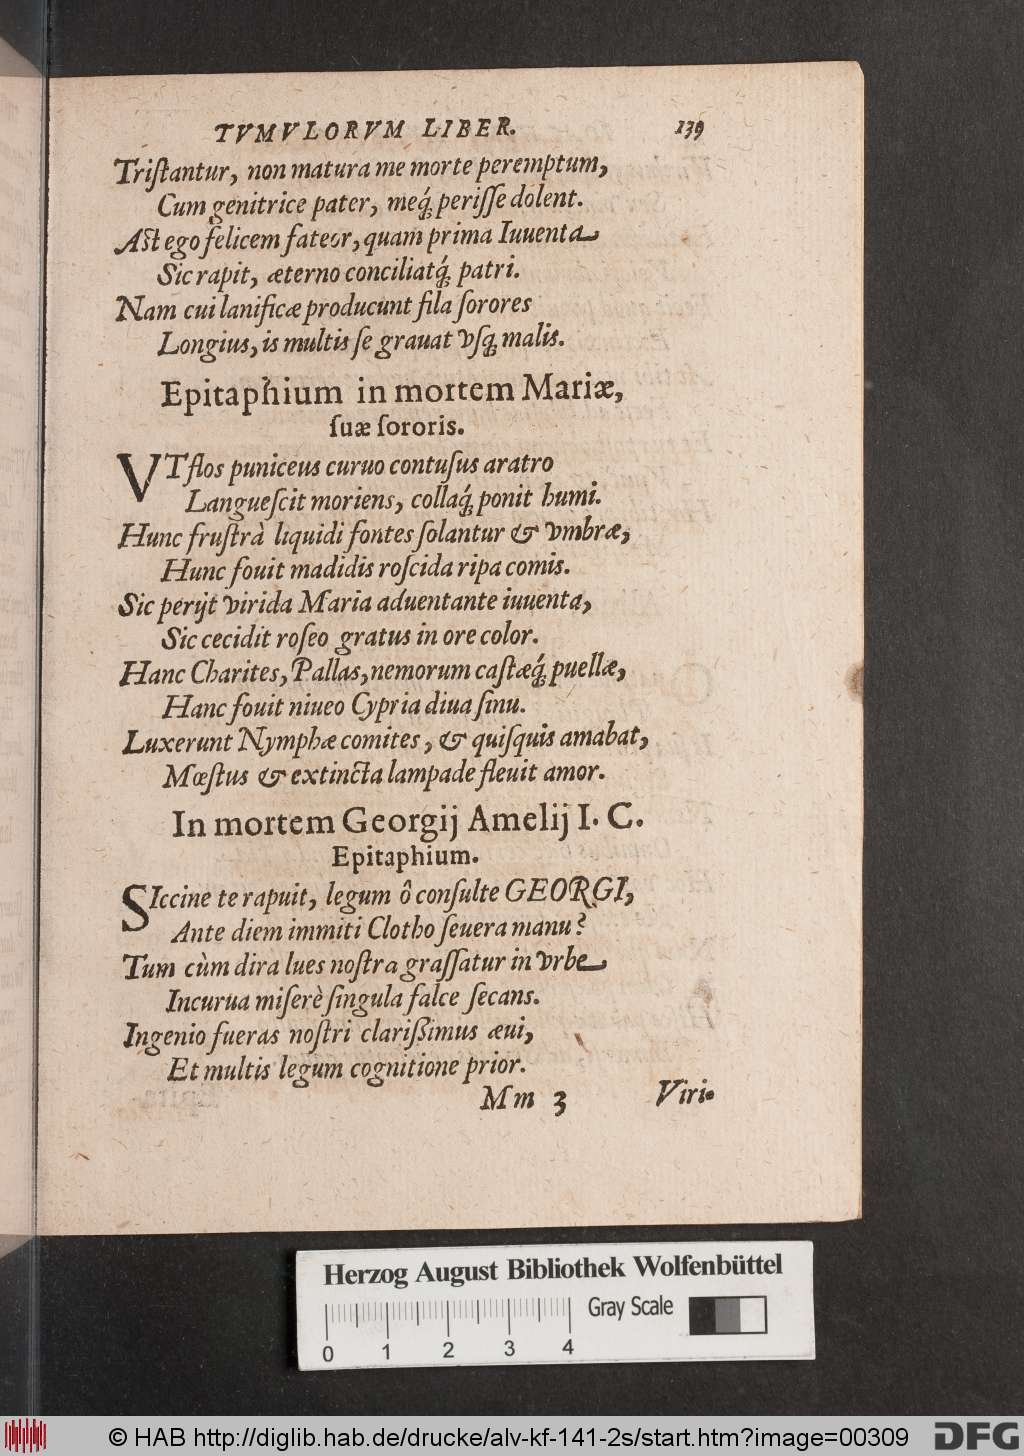 TVMVLORVM LIBER. 139
Triſtantur, non matura me morte peremptum,
Cum genitrice pater, meq́; periſſe dolent.
Aſt ego felicem fateor, quam prima Iuuenta
Sic rapit, æterno conciliatq́; patri.
Nam cui lanificæ producunt fila ſorores
Longius, is multis ſe grauat vſq; malis.
Epitaphium in mortem Mariæ,
ſuæ ſororis.
VT flos puniceus curuo contuſus aratro
Langueſcit moriens, collaq́; ponit humi.
Hunc fruſtrà liquidi fontes ſolantur & vmbræ,
Hunc fouit madidis roſcida ripa comis.
Sic perijt virida Maria aduentante iuuenta,
Sic cecidit roſeo gratus in ore color.
Hanc Charites, Pallas, nemorum caſtæq́; puellæ,
Hanc fouit niueo Cypria diua ſinu.
Luxerunt Nymphæ comites, & quiſquis amabat,
Mœſtus & extincta lampade fleuit amor.
In mortem Georgij Amelij I. C.
Epitaphium.
SIccine te rapuit, legum ô conſulte GEORGI,
Ante diem immiti Clotho ſeuera manu?
Tum cùm dira lues noſtra graſſatur in vrbe
Incurua miſerè ſingula falce ſecans.
Ingenio fueras noſtri clarißimus æui,
Et multis legum cognitione prior.
Mm 3 Viri-
Herzog August Bibliothek Wolfenbüttel
Gray Scale
0 1 2 3 4
© HAB http://diglib.hab.de/drucke/alv-kf-141-2s/start.htm?image=00309
DFG